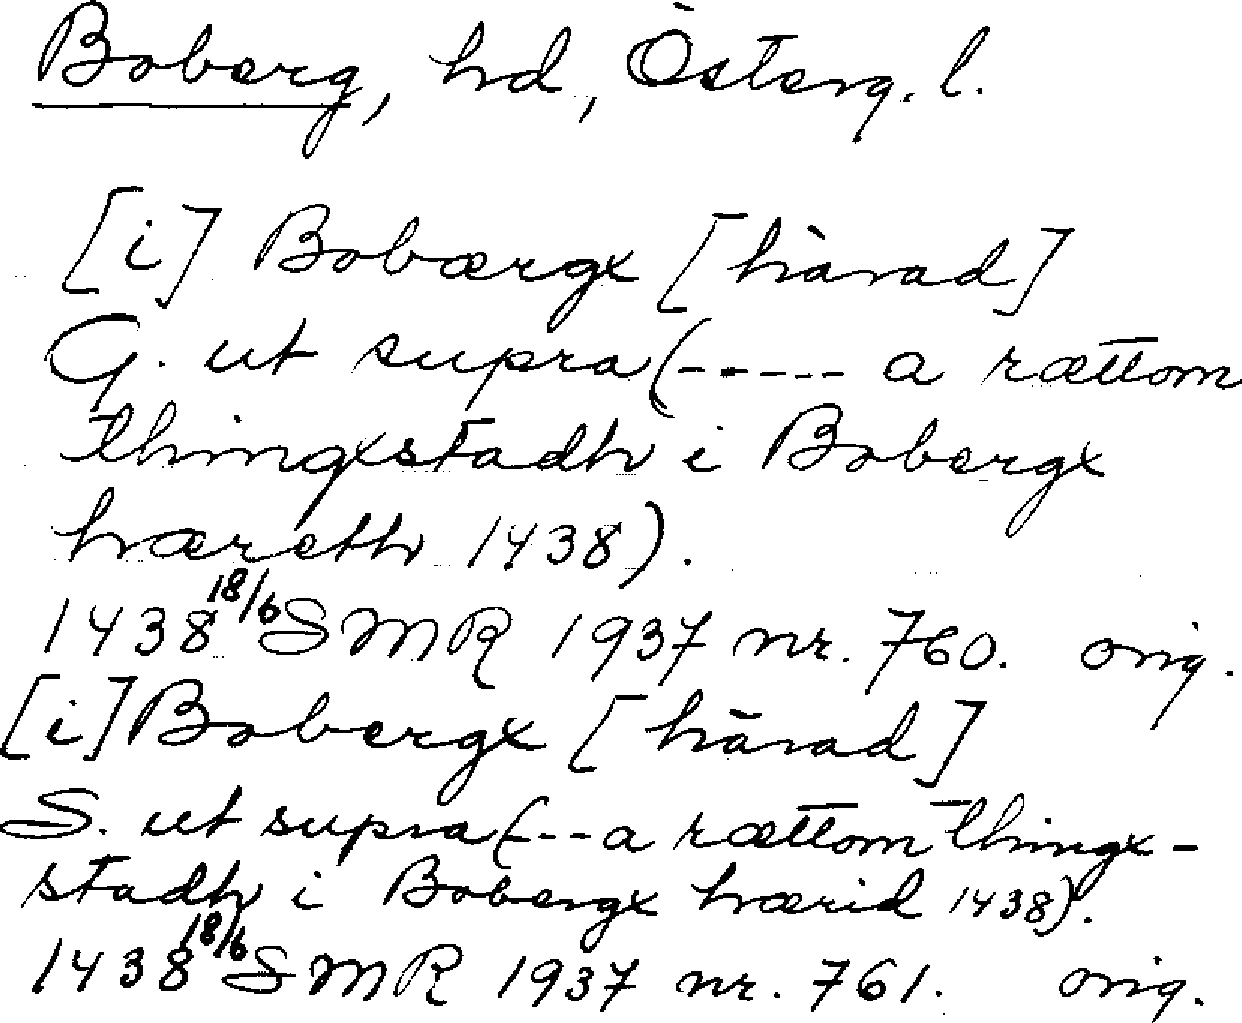 Boberg, hd, Österg. l.
[i] Bobærgx [härad]
G. ut supra (----- a rættom
thingxstadh i Bobergx
hæreth 1438).
1438 18/6 SMR 1937 nr. 760. orig.
[i] Bobergx [härad]
S. ut supra (--- a rættom thingx-
stadh i Bobergx hærid 1438).
1438 18/6 SMR 1937 nr. 761. orig.